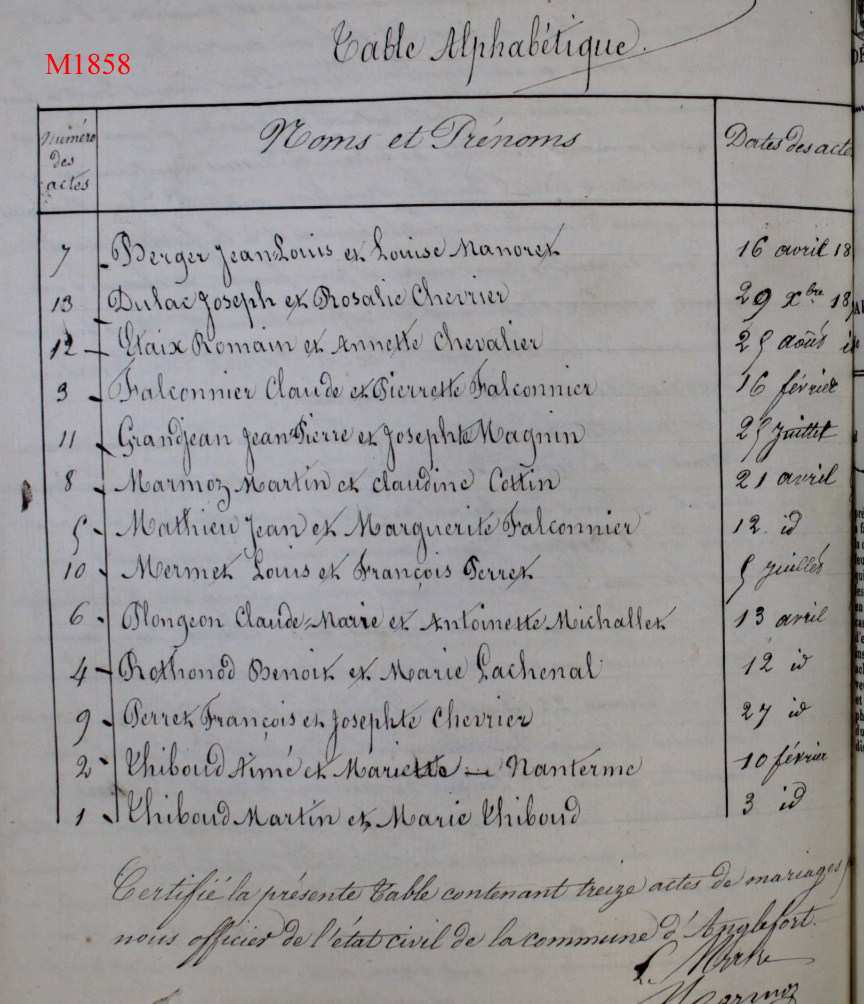 Table Alphabétique.
M1858
Numéro des actes Noms et Prénoms Dates des acte
7 Berger Jean Louis et Louise Manoret 16 avril 18
13 Dulac Joseph et Rosalie Chevrier 29 Xbre 18
12 Etaix Romain et Annette Chevalier 25 août
3 Falconnier Claude et Pierrette Falconnier 16 février
11 Grandjean Jean Pierre et Josephte Magnin 25 juillet
8 Marmoz Martin et Claudine Cottin 21 avril
5 Mathieu Jean et Marguerite Falconnier 12 id
10 Mermet Louis et François Perret 5 juillet
6 Plongeon Claude-Marie et Antoinette Michallet 13 avril
4 Rothonod Benoit et Marie Lachenal 12 id
9 Perret François et Josephte Chevrier 27 id
2 Thiboud Aimé et Mariette - Nanterme 10 février
1 Thiboud Martin et Marie Thiboud 3 id
Certifié la présente Table contenant treize actes de mariages
nous officier de l'état civil de la commune d'Anglefort.
Le Maire
Marmoz